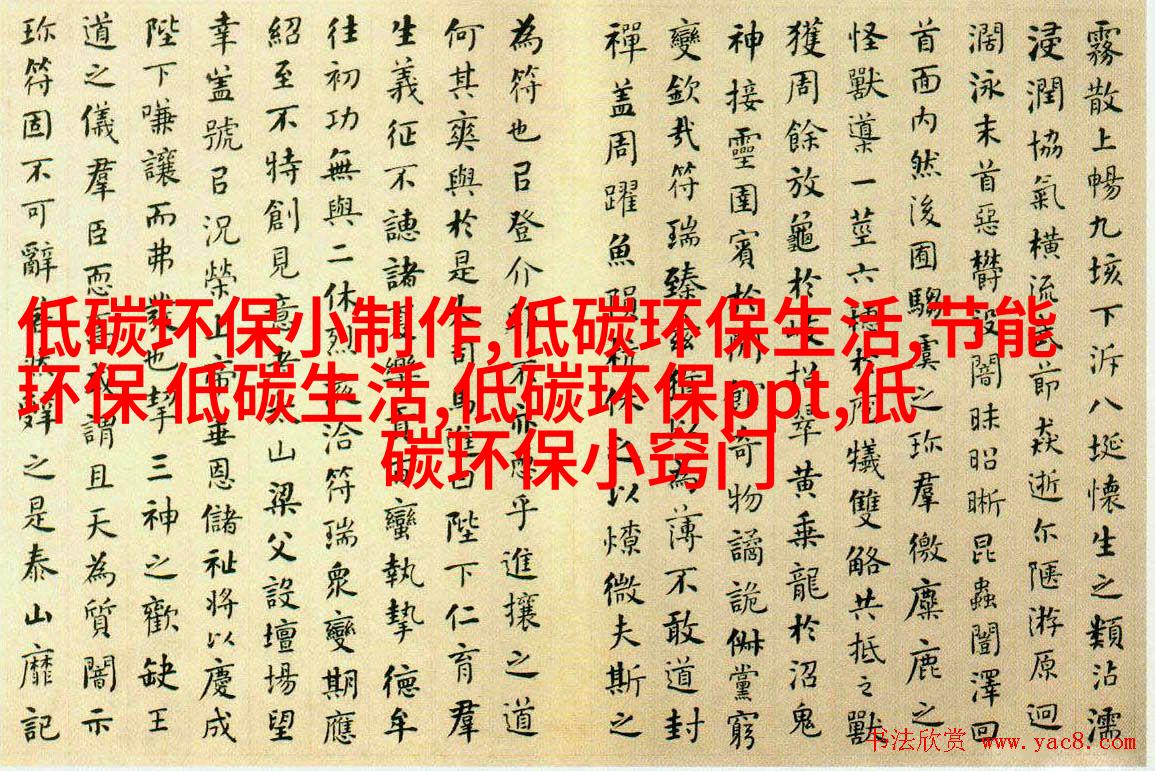 霧散上暢九垓下泝八埏懷生之類沾濡
浸潤協氣橫流武節猋逝尔陿游原迥
濶泳末首惡欝没闇昧昭晣昆蟲闓澤回
首面内然後囿騶虞之珎羣徼麋鹿之
怪獸導一莖六穗於庖犧雙觡共抵之獸
獲周餘放龜於岐招翠黄乗龍於沼鬼
神接靈圉賓於閒館奇物譎詭俶儻窮
變欽哉符瑞臻兹猶以為薄不敢道封
禪盖周躍魚隕杭休之以燎微夫斯之
為符也㠯登介邱不亦恧乎進攘之道
何其爽與於是大司馬進曰陛下仁育羣
生義征不譓諸夏樂貢百蠻執摯德牟
往初功無與二休烈浹洽符瑞衆變期應
紹至不特創見意者太山梁父設壇場望
幸盖號㠯况榮上帝垂恩儲祉将以慶成
陛下嗛讓而弗發也挈三神之歡缺王
道之儀羣臣恧焉或謂且天為質闇示
珎符固不可辭若然辤之是泰山靡記
低碳环保小制作,低碳环保生活,节能
环保 低碳生活,低碳环保ppt,低
碳环保小窍门
书法欣赏 www.yac8.com